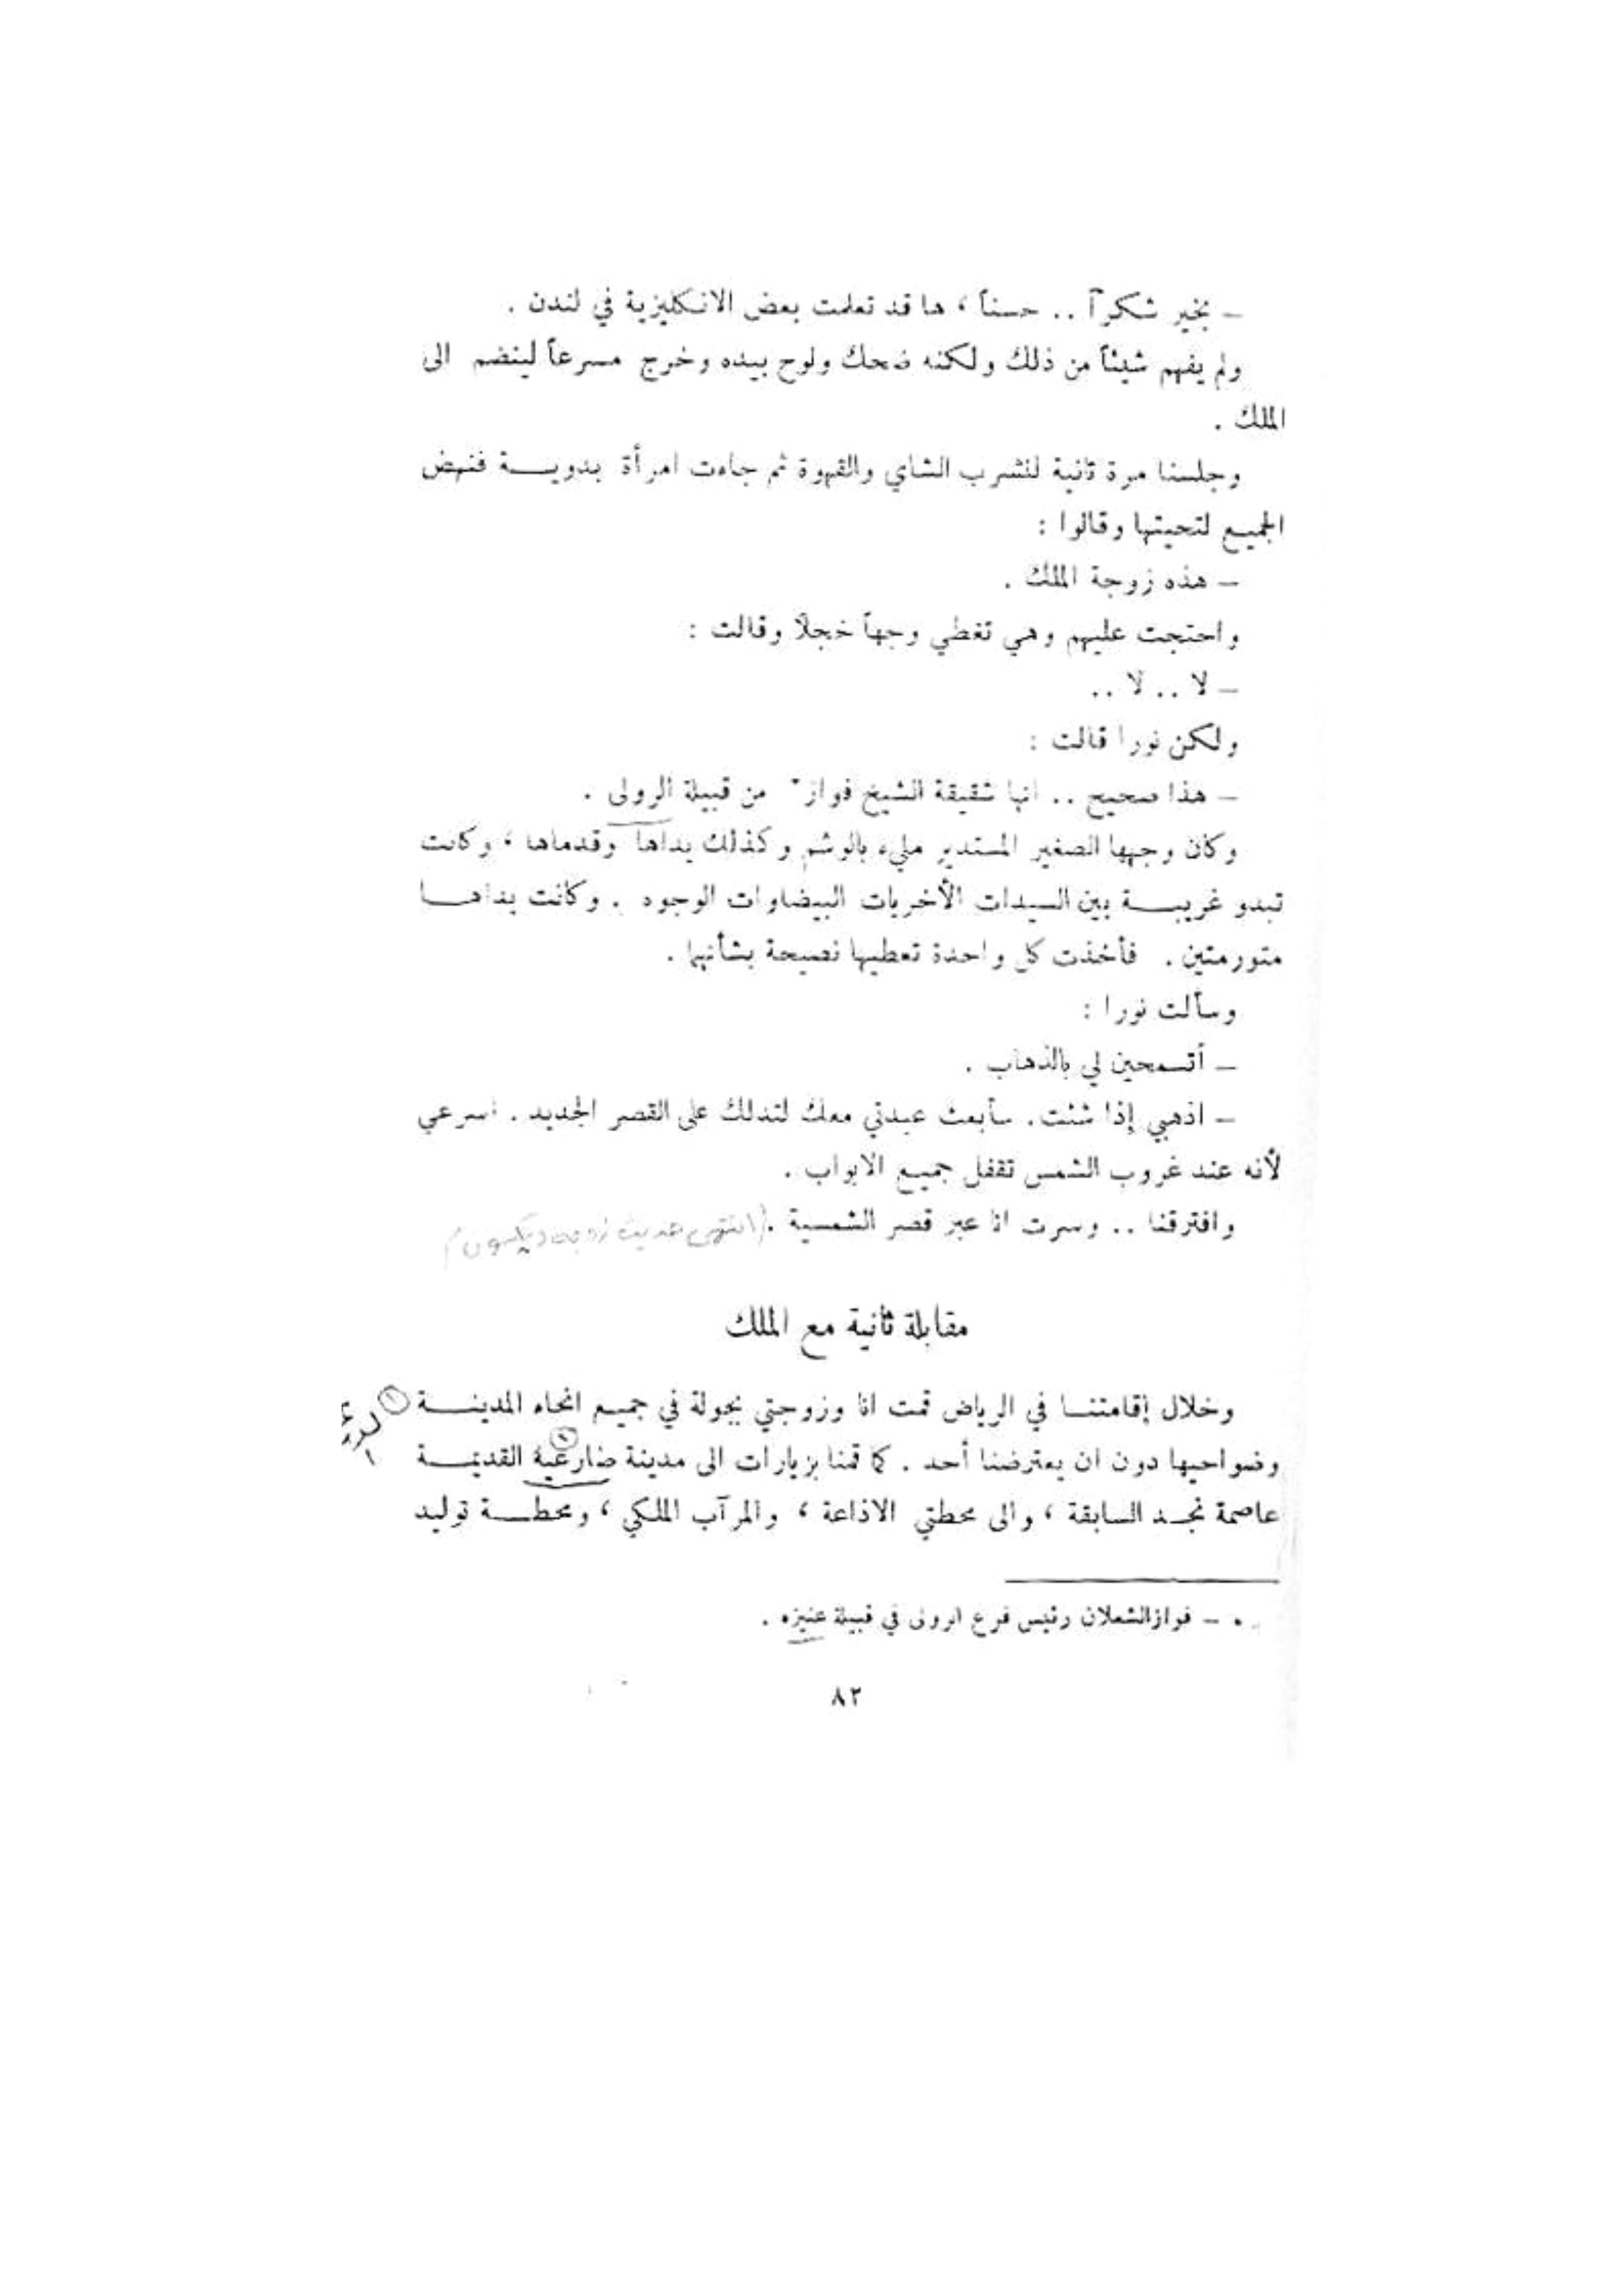 – بخير شكراً .. حسناً ، ها قد تعلمت بعض الانكليزية في لندن .
ولم يفهم شيئاً من ذلك ولكنه ضحك ولوح بيده وخرج مسرعاً لينضم الى
الملك .
وجلسنا مرة ثانية لنشرب الشاي والقهوة ثم جاءت امرأة بدويـــة فنهض
الجميع لتحيتها وقالوا :
– هذه زوجة الملك .
واحتجت عليهم وهي تغطي وجهاً خجلاً وقالت :
– لا .. لا ..
ولكن نورا قالت :
– هذا صحيح .. انها شقيقة الشيخ فواز * من قبيلة الرولى .
وكان وجهها الصغير المستدير مليء بالوشم وكذلك يداها وقدماها ، وكانت
تبدو غريبـــة بين السيدات الأخريات البيضاوات الوجوه . وكانت يداهــا
متورمتين . فأخذت كل واحدة تعطيها نصيحة بشأنها .
وسألت نورا :
– أتسمحين لي بالذهاب .
– اذهبي إذا شئت . سأبعث عبدتي معك لتدلك على القصر الجديد . اسرعي
لأنه عند غروب الشمس تقفل جميع الابواب .
وافترقنا .. وسرت انا عبر قصر الشمسية . (انتهى حديث زوجة ديكسون)
مقابلة ثانية مع الملك
وخلال إقامتنــا في الرياض قمت انا وزوجتي بجولة في جميع انحاء المدينـــة (١)
وضواحيها دون ان يعترضنا أحد . كما قمنا بزيارات الى مدينة ضارعية (١) القديمـــة
عاصمة نجــد السابقة ، والى محطتي الاذاعة ، والمرآب الملكي ، ومحطـــة توليد
* – فواز الشعلان رئيس فرع الرولى في قبيلة عنيزه .
٨٢